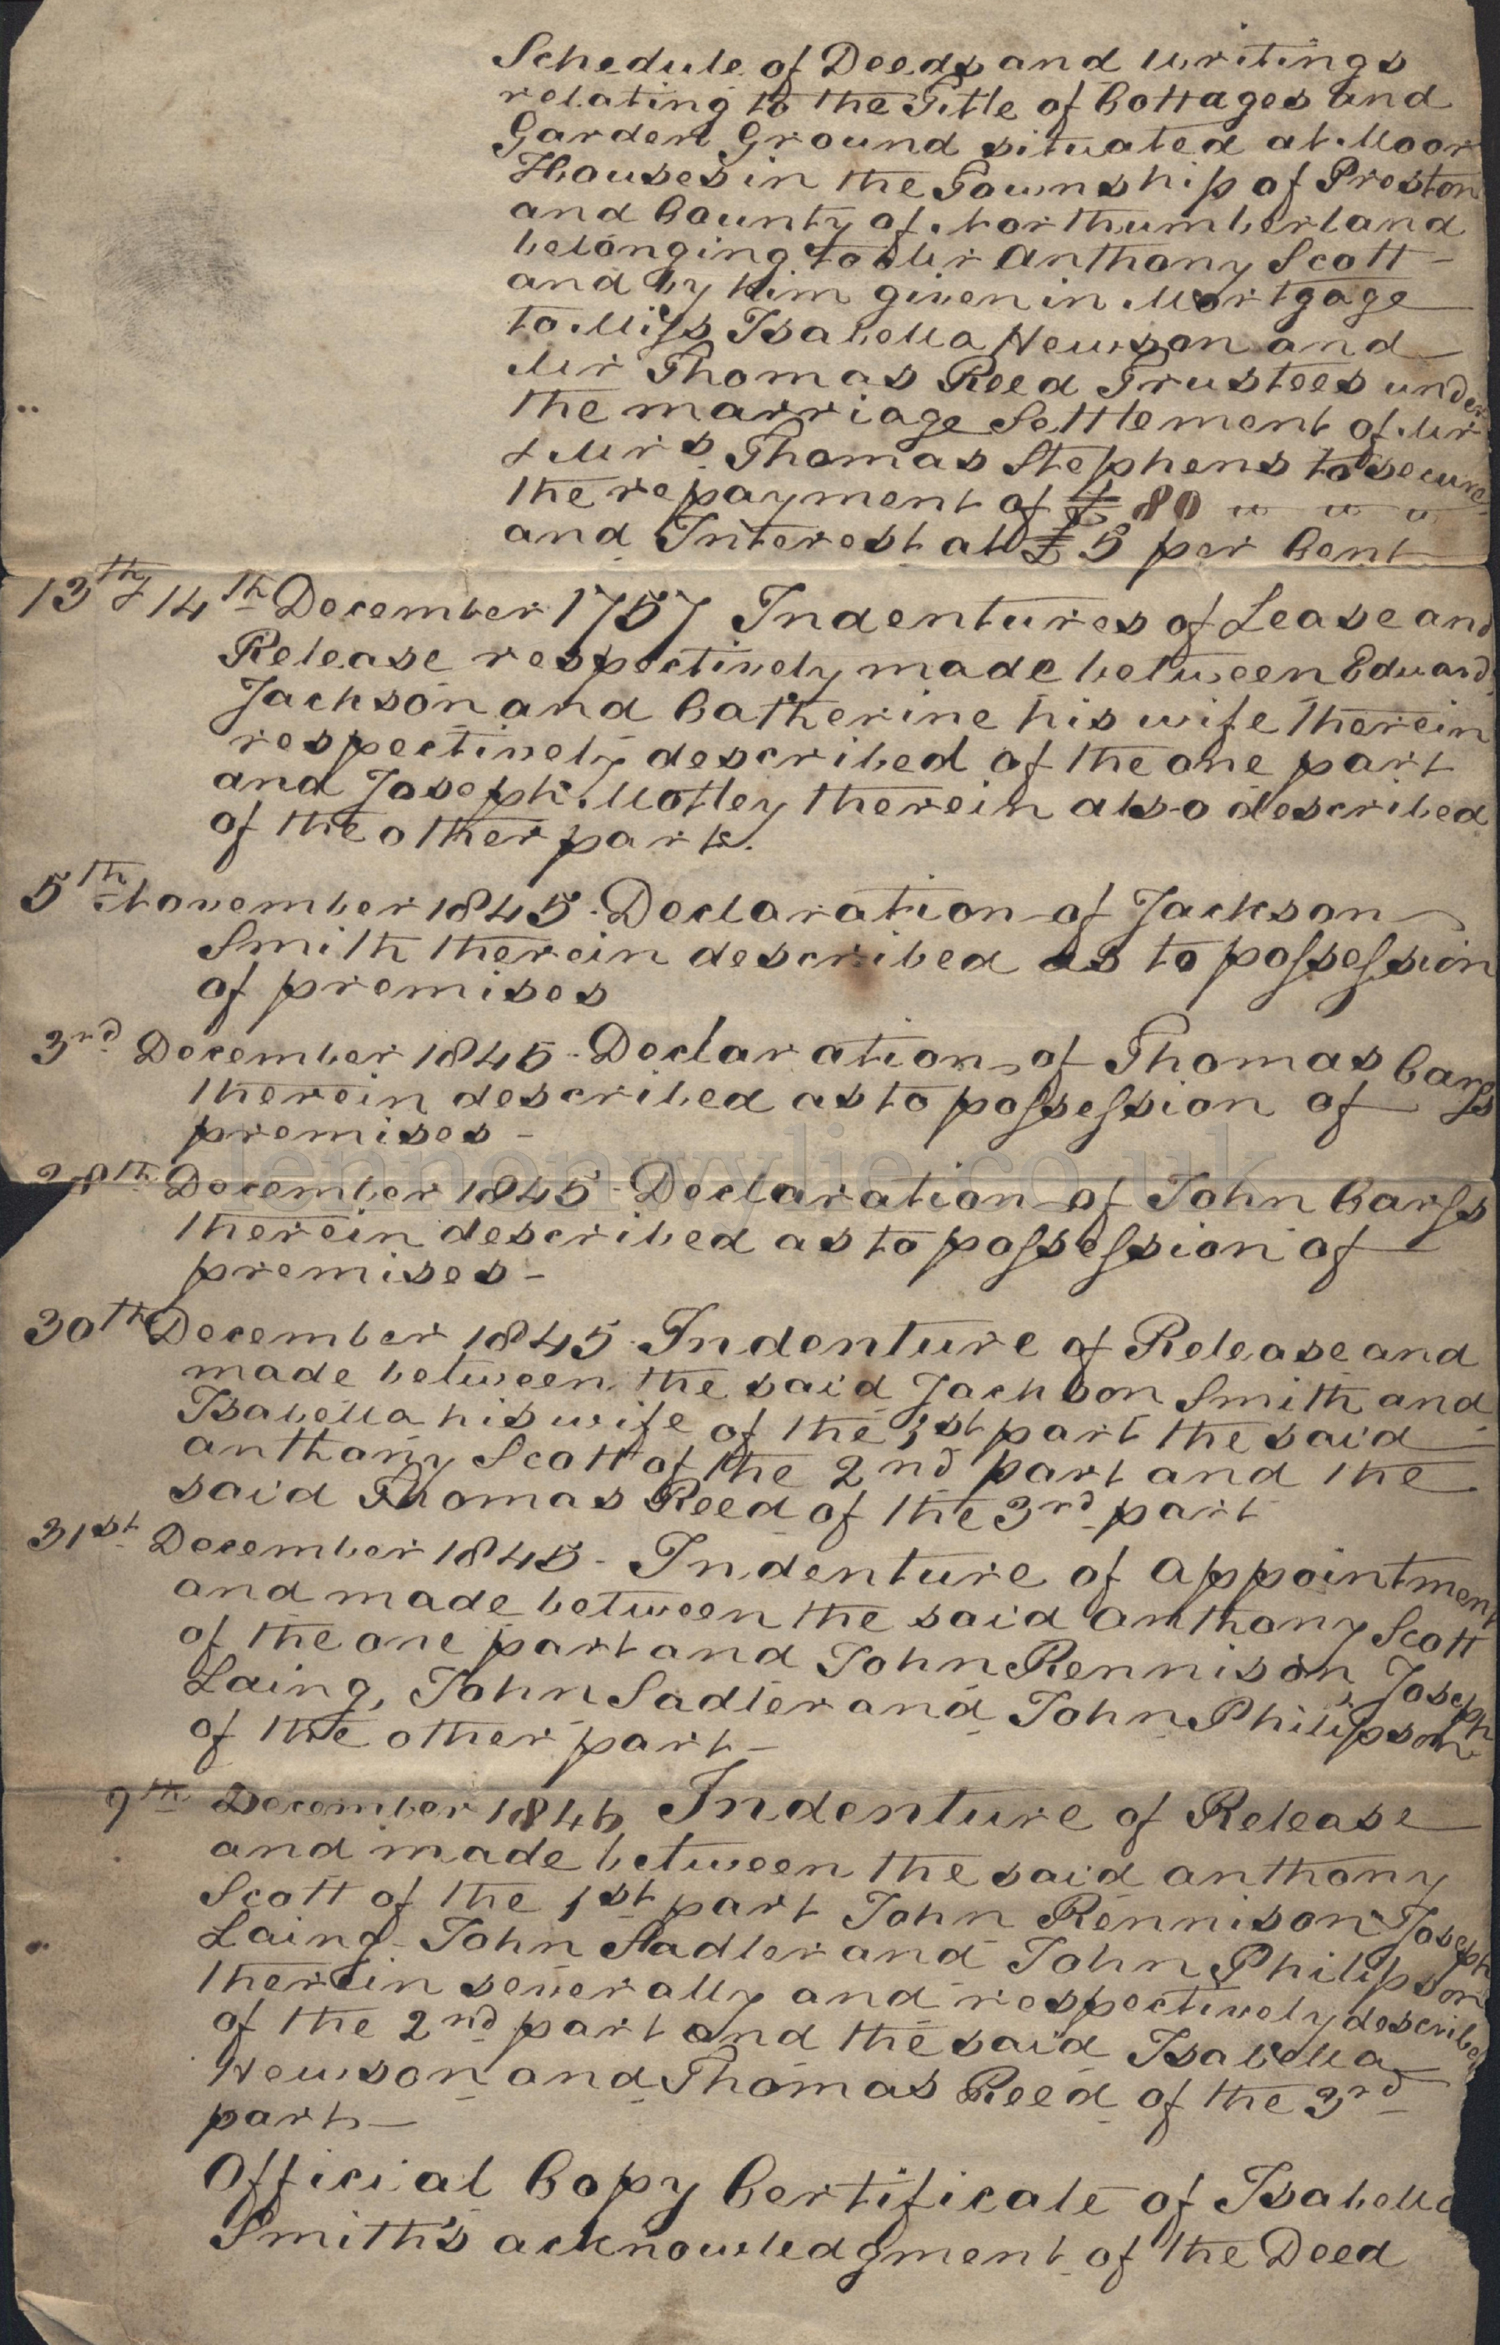 Schedule of Deeds and Writings
relating to the Title of Cottages and
Garden Ground situated at Moor
Houses in the Township of Preston
and County of Northumberland
belonging to Mr Anthony Scott
and by him given in Mortgage
to Miss Isabella Hewison and
Mr Thomas Reed Trustees under
the marriage Settlement of Mr
& Mrs Thomas Stephens to secure
the repayment of £80
and Interest at £5 per Cent
13th & 14th December 1757 Indentures of Lease and
Release respectively made between Edward
Jackson and Catherine his wife therein
respectively described of the one part
and Joseph Motley therein also described
of the other part.
5th November 1845 - Declaration of Jackson
Smith therein described as to possession
of premises
3rd December 1845 - Declaration of Thomas Carss
therein described as to possession of
premises -
December 1845 - Declaration of John Carss
therein described as to possession of
premises -
30th December 1845 - Indenture of Release and
made between the said Jackson Smith and
Isabella his wife of the 1st part the said
Anthony Scott of the 2nd part and the
said Thomas Reed of the 3rd part
31st December 1845 - Indenture of Appointment
and made between the said Anthony Scott
of the one part and John Rennison, Joseph
Laing, John Sadler and John Philipson
of the other part -
9th December 1846 Indenture of Release
and made between the said Anthony
Scott of the 1st part John Rennison Joseph
Laing John Sadler and John Philipson
therein severally and respectively described
of the 2nd part and the said Isabella
Hewison and Thomas Reed of the 3rd
part -
Official Copy Certificate of Isabella
Smith's acknowledgment of the Deed
lennonwylie.co.uk